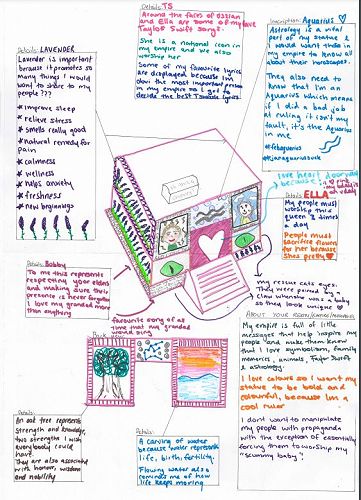 Details: TS
Around the faces of Ossian
and Ella are some of my fave
Taylor Swift songs.
She is a national icon in
my empire and we also
worship her
Some of my favourite lyrics
are displayed because im
the most important person
in my empire so I got to
decide the best Taylor lyrics
Inscription: Aquarius
Astrology is a vital
part of my statue as
I would want those in
my empire to know all
about their horoscopes.
They also need to
know that I'm an
Aquarius which means
if I did a bad job
at ruling it isn't my
fault, it's the Aquarius
in me
#febaquarius
Details: LAVENDER
Lavender is important
because it promotes so
many things I would
want to share to my
people ???
* improve sleep
* relieve stress
* smells really good
* natural remedy for
pain
* calmness
* wellness
* helps anxiety
* freshness
* new beginnings
love heart doorway
because i
Details: ELLA
My people must
worship this
queen 3 times
a day
People must
sacrifice flowers
for her because
shes pretty
Details: Bobby
To me this represents
respecting your elders
and making sure their
presence is never forgotten
I love my grandad more
than anything
favourite song of all
time that my grandad
would sing
my rescue cats eyes.
They were poked by a
claw when she was a baby
so they look unique
Back
My empire is full of little
messages that help inspire my
people and make them know
that I love symbolism, family
memories, animals, Taylor Swift
& astrology.
I love colours so I want my
statue to be bold and
colourful, because Im a
cool ruler
I dont want to manipulate
my people with propaganda
with the exception of essentially
forcing them to worship my
"scummy baby".
Details:
An oak tree represents
strength and knowledge,
two strengths I wish
everybody could
have.
They are also associated
with honour, wisdom
and nobility
Details:
A carving of water
because water represents
life, birth, fertility.
Flowing water also
reminds me of how
life keeps moving